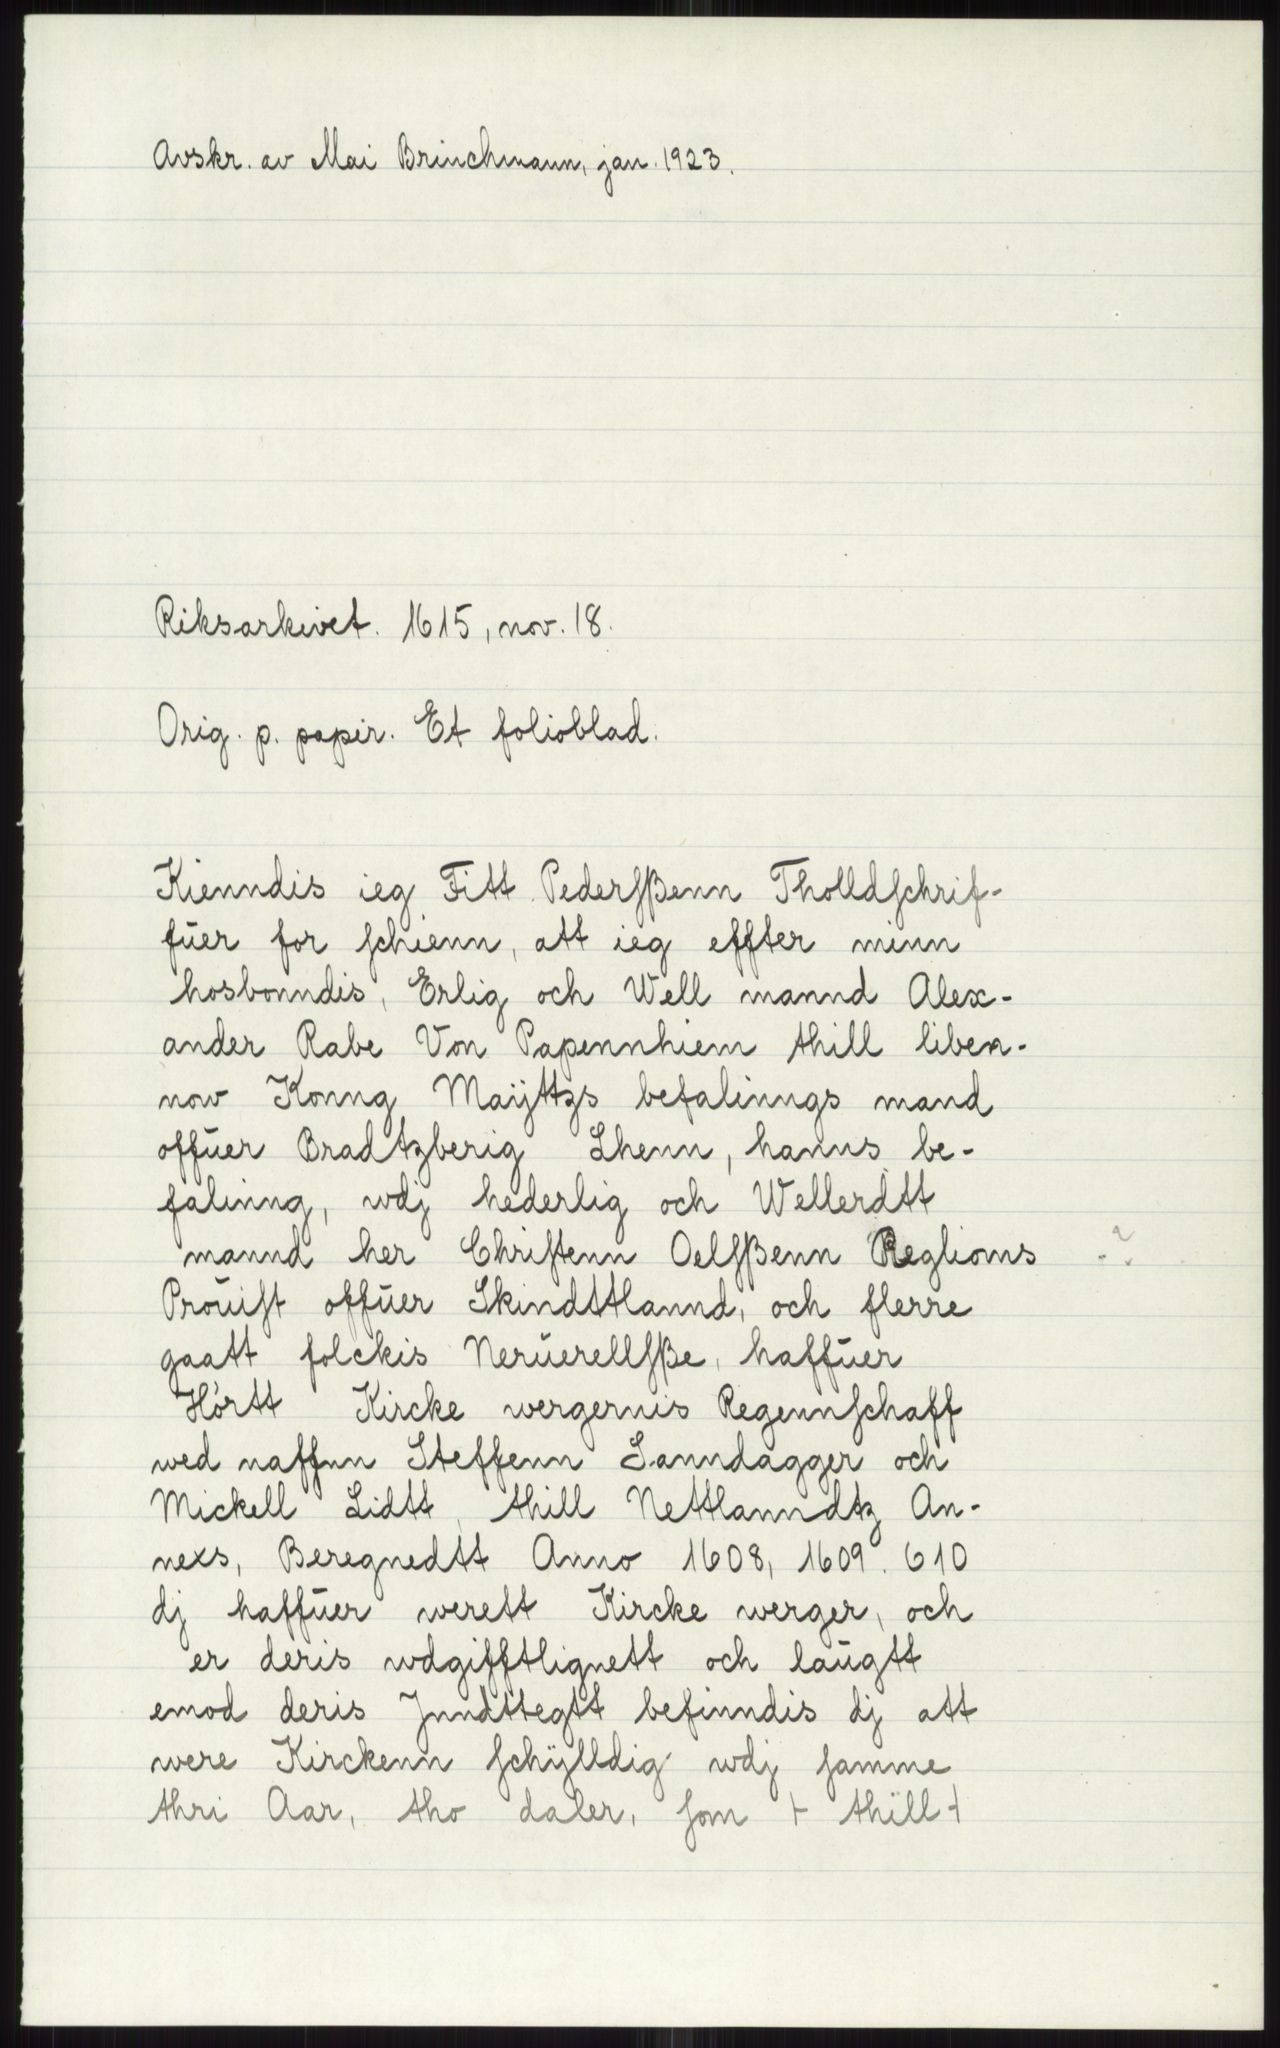 Avskr. av Mai Brinchmann, jan. 1923.
Riksarkivet. 1615, nov. 18.
Orig. p. papir. Et folioblad.
Kienndis ieg Fitt Pederſßenn Tholldſchrif-
fŭer for ſchienn, att ieg effter minn
hosbonndis, Erlig och Well mannd Alex-
ander Rabe Von Papennhiem thill liben-
now Konng Maÿttzs befalinngs mand
offŭer Bradtzberig Lhenn, hanns be-
falinng, wdj hederlig och Wellerdtt
mannd her Chriſtenn Oelſßenn Reglioms
Proŭiſt offŭer Skindttlannd, och flerre
gaatt folckis Nerŭerellſße, haffŭer
Hórtt Kircke wergernis Regennſchaff
wed naffnn Steffenn Sanndagger och
Mickell Lidtt, thill Nettlanndtz An-
nexs, Beregnedtt Anno 1608, 1609. 610
dj haffŭer werett Kircke werger, och
er deris wdgifftlignett och laŭgtt
emod deris Jnndttegtt befinndis dj att
were Kirckenn ſchÿlldig wdj ſamme
thri Aar, tho daler, ſom + thïll +